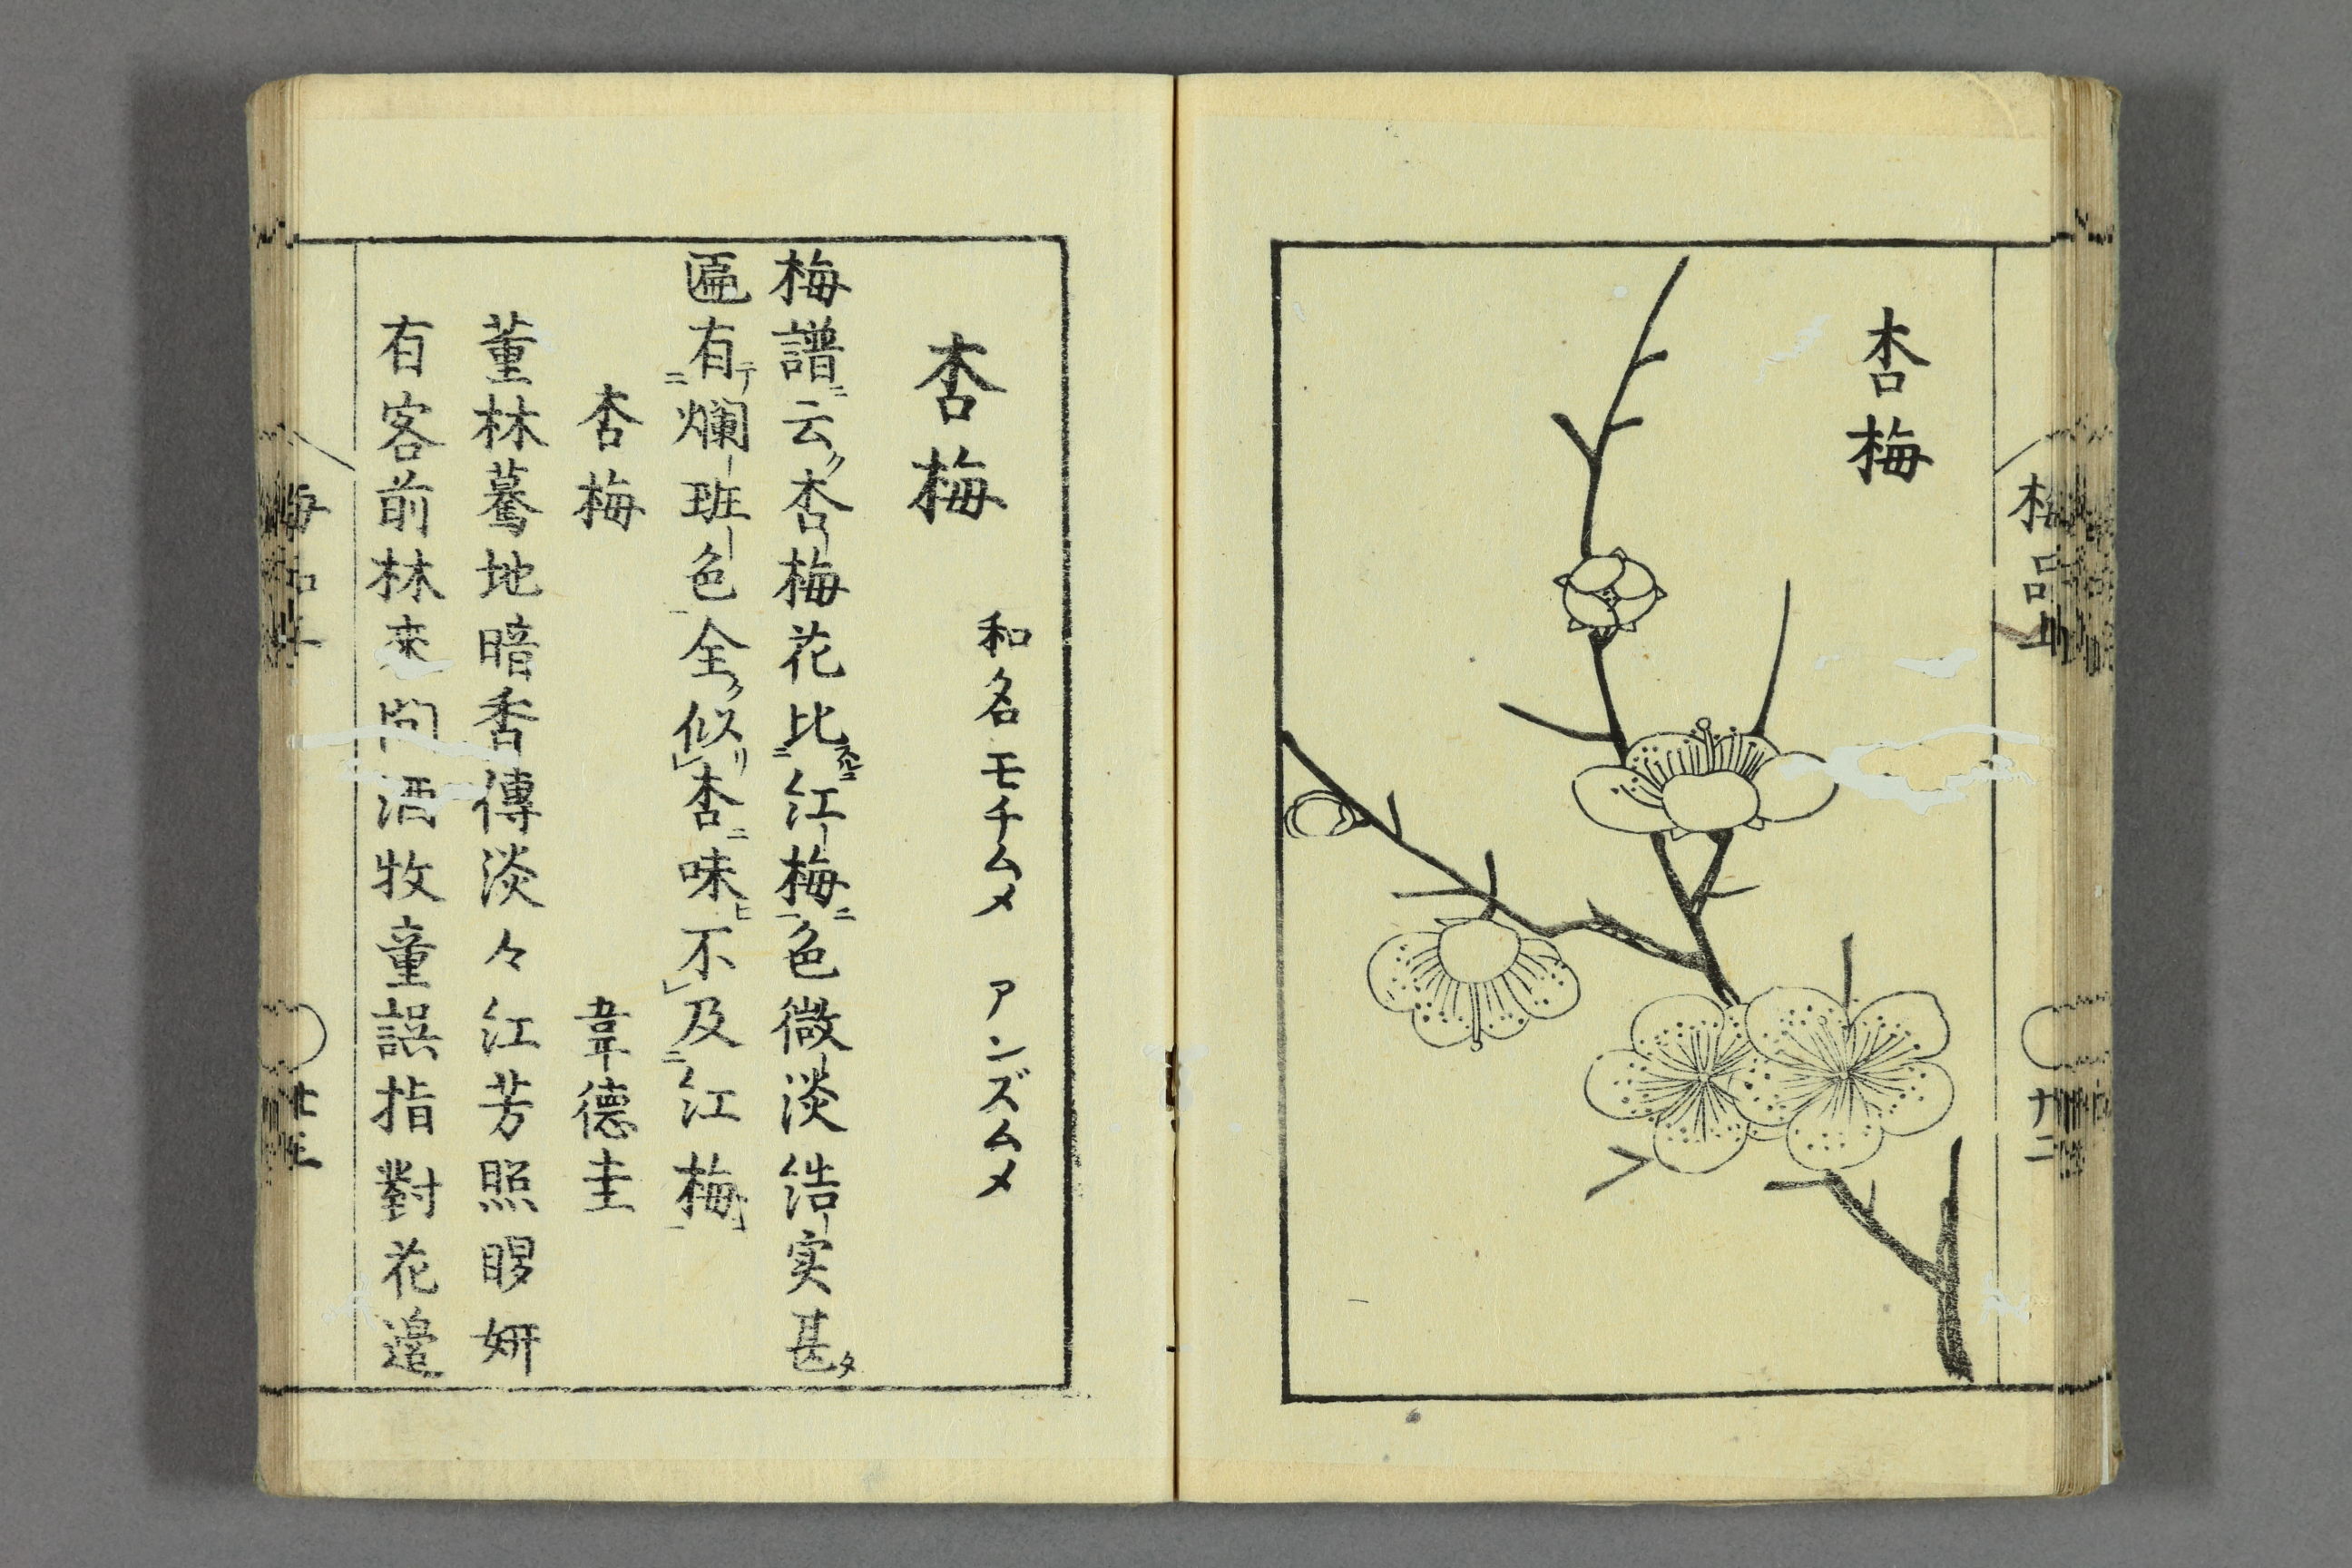 杏梅
梅品上
廿二
杏梅
和名モチムメ　アンズムメ
梅譜ニ云ク杏梅花比スルニ紅梅ニ色微淡結実甚タ
匾有テ爛班色全ク似リ杏ニ味ヒ不及紅梅ニ
杏梅　韋德圭
董林驀地暗香傳淡々江芳照眼妍
有客前林來問酒牧童誤指對花邉